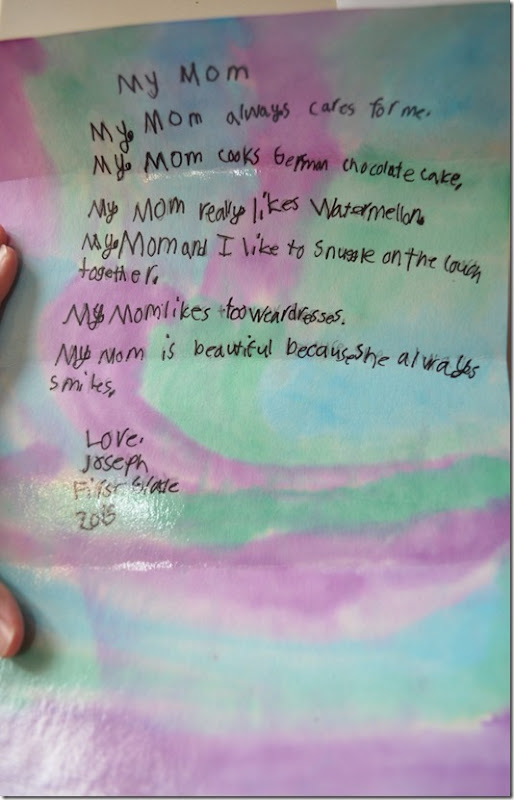 My Mom
My Mom always cares for me.
My Mom cooks German chocolate cake.
My Mom really likes Watermellon.
My Mom and I like to snuggle on the couch
together.
My Mom likes too wear dresses.
My Mom is beautiful because she always
smiles.
Love,
Joseph
First Grade
2015